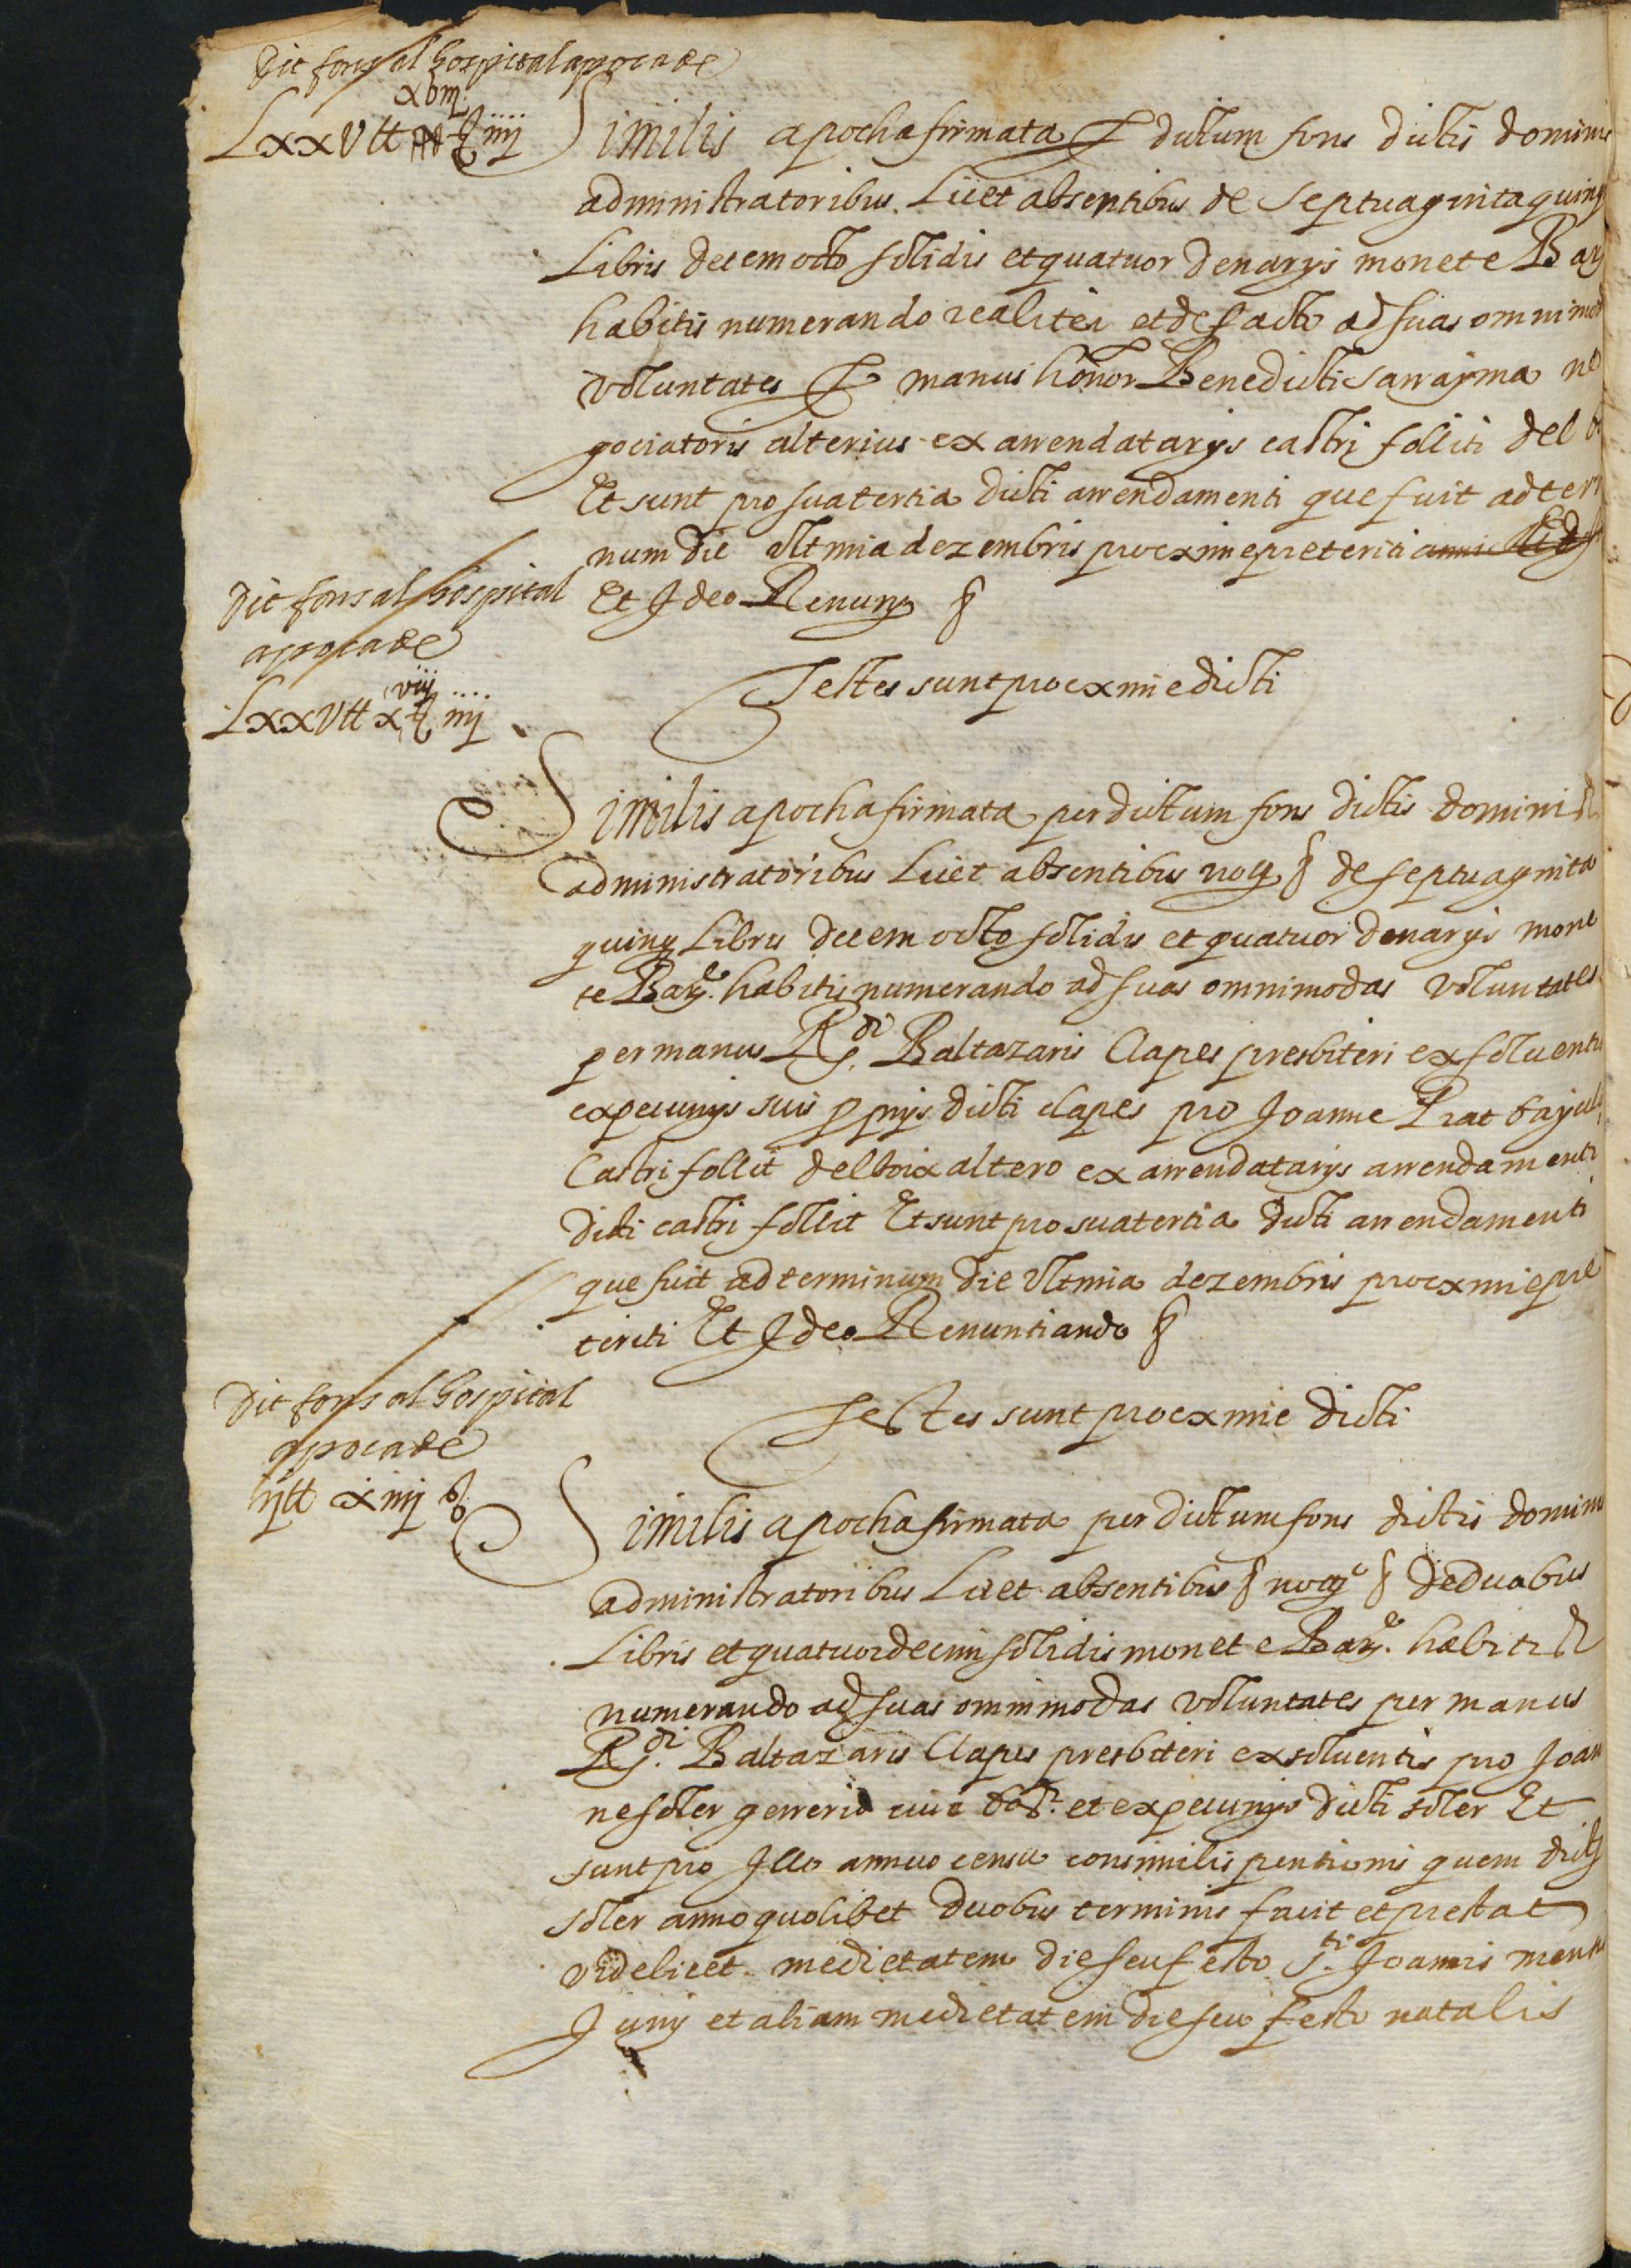 Dit fons al hospital apoca de
xbiij
Lxxv ll ß iiij
Similis apocha firmata per dictum fons dictis dominis
administratoribus licet absentibus de septuaginta quinq
Libris decem octo solidis et quatuor denarijs monete Bar
habitis numerando realiter et de facto ad suas omnimod
voluntates per manus honor Benedicti sarrayma ne
gociatoris alterius ex arrendatarijs castri folliti del
Et sunt pro sua tertia dicti arrendamenti que fuit ad term
num die ultimia dezembris proxime preteriti
Et Ideo Renung §
Testes sunt proexmie dicti
Dit fons al hospital
apoca de
viij
Lxxv ll x ß iiij
Similis apocha firmata per dictum fons dictis domini
administratoribus licet absentibus § de septuaginta
quinq Libris decem octo solidis et quatuor denarijs mone
te Bar. habitis numerando ad suas omnimodas voluntates
per manus Rdi. Baltazaris Clapes presbiteri exsoluentis
ex pecunijs suis ppijs dicti clapes pro Joanne Prat bajulo
Castri follit del boix altero ex arrendatarijs arrendamenti
dicti castri follit Et sunt pro sua tertia dicti arrendamenti
que fuit ad terminum die ultimia dezembris proexmie pre
teriti Et Ideo Renuntiando §
Testes sunt proexmie dicti
Dit fons al hospital
apoca de
ij ll xiiij ß
Similis apocha firmata per dictum fons dictis domini
administratoribus licet absentibus § § de duabus
Libris et quatuordecim solidis monete Bar. habiti
numerando ad suas omnimodas voluntates per manus
Rdi. Baltazaris Clapes presbiteri exsoluentis pro Joan
ne soler gerrerio et ex pecunijs dicti soler Et
sunt pro Illo annuo censu consimilis pentionis quem dict
soler anno quolibet duobus terminis facit et prestat
videlicet medietatem die seu festo Sti. Joannis mens
Junij et aliam medietatem die seu festo natalis